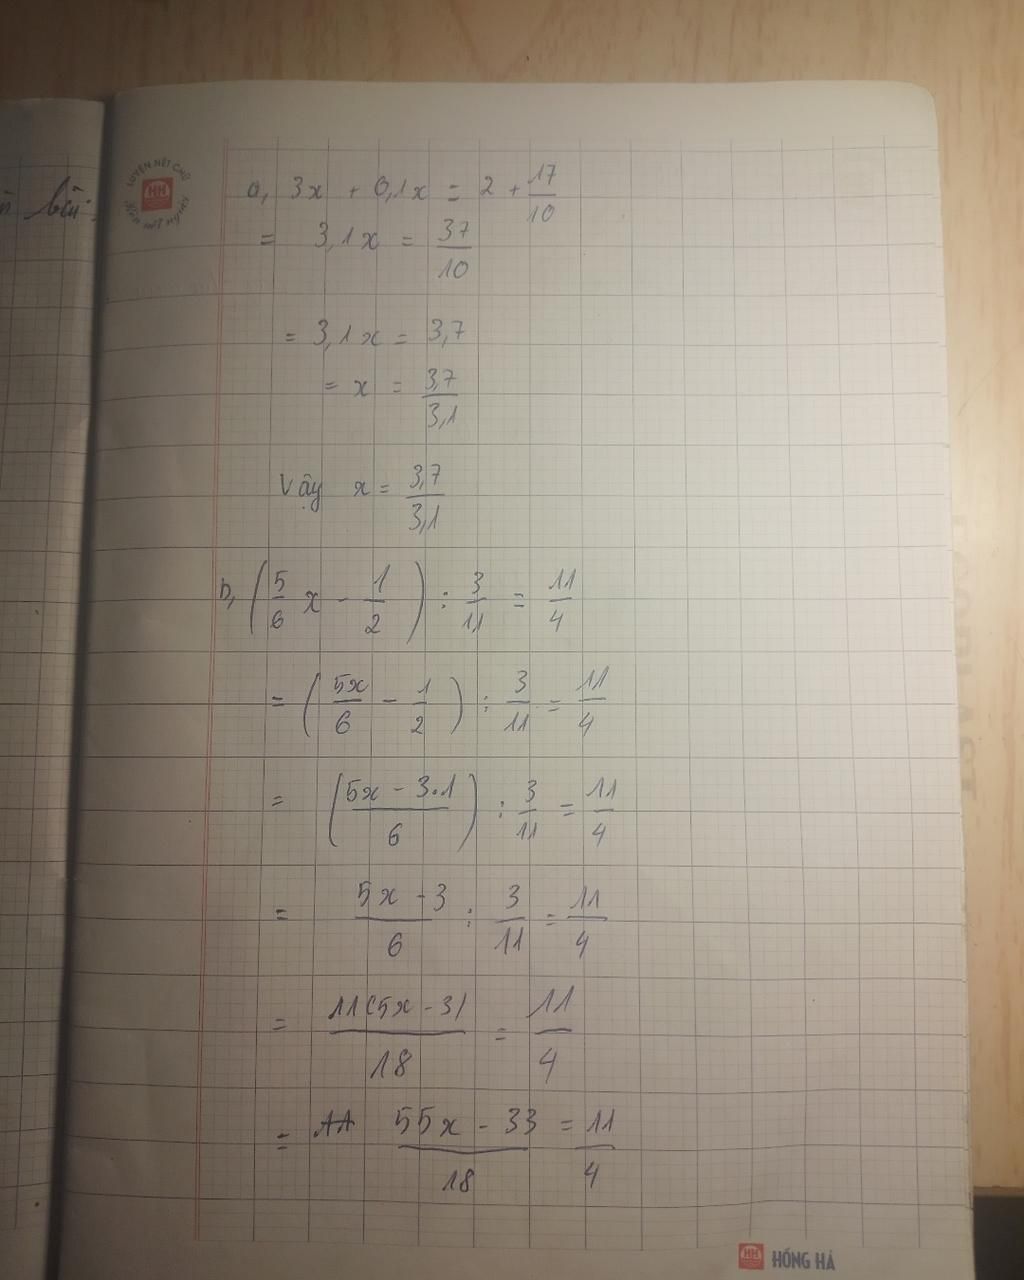 LUYỆN NÉT CHỮ
HH
Rèn nết người
bài
a, 3x + 0,1x = 2 + 17/10
= 3,1x = 37/10
= 3,1x = 3,7
= x = 3,7/3,1
Vậy x = 3,7/3,1
b, (5/6 x - 1/2) : 3/11 = 11/4
= (5x/6 - 1/2) : 3/11 = 11/4
= (5x - 3.1/6) : 3/11 = 11/4
= 5x - 3/6 : 3/11 = 11/4
= 11(5x - 3)/18 = 11/4
= 55x - 33/18 = 11/4
HH HỒNG HÀ